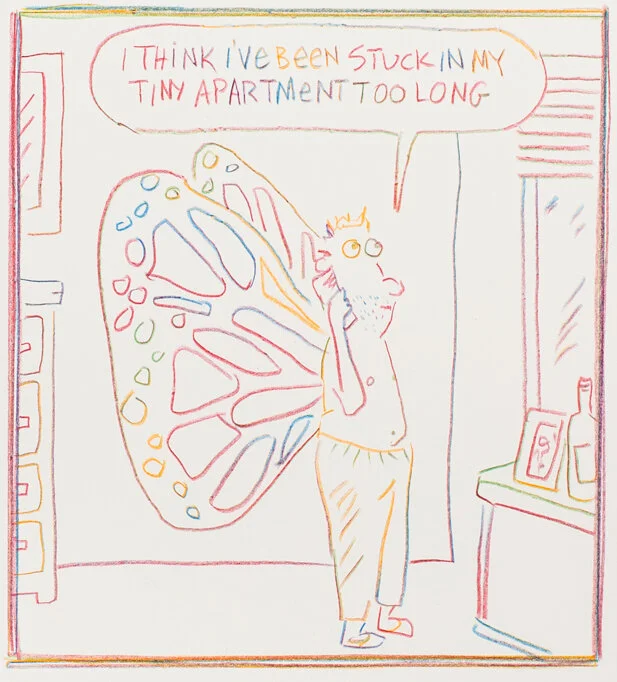 I THINK I'VE BEEN STUCK IN MY
TINY APARTMENT TOO LONG